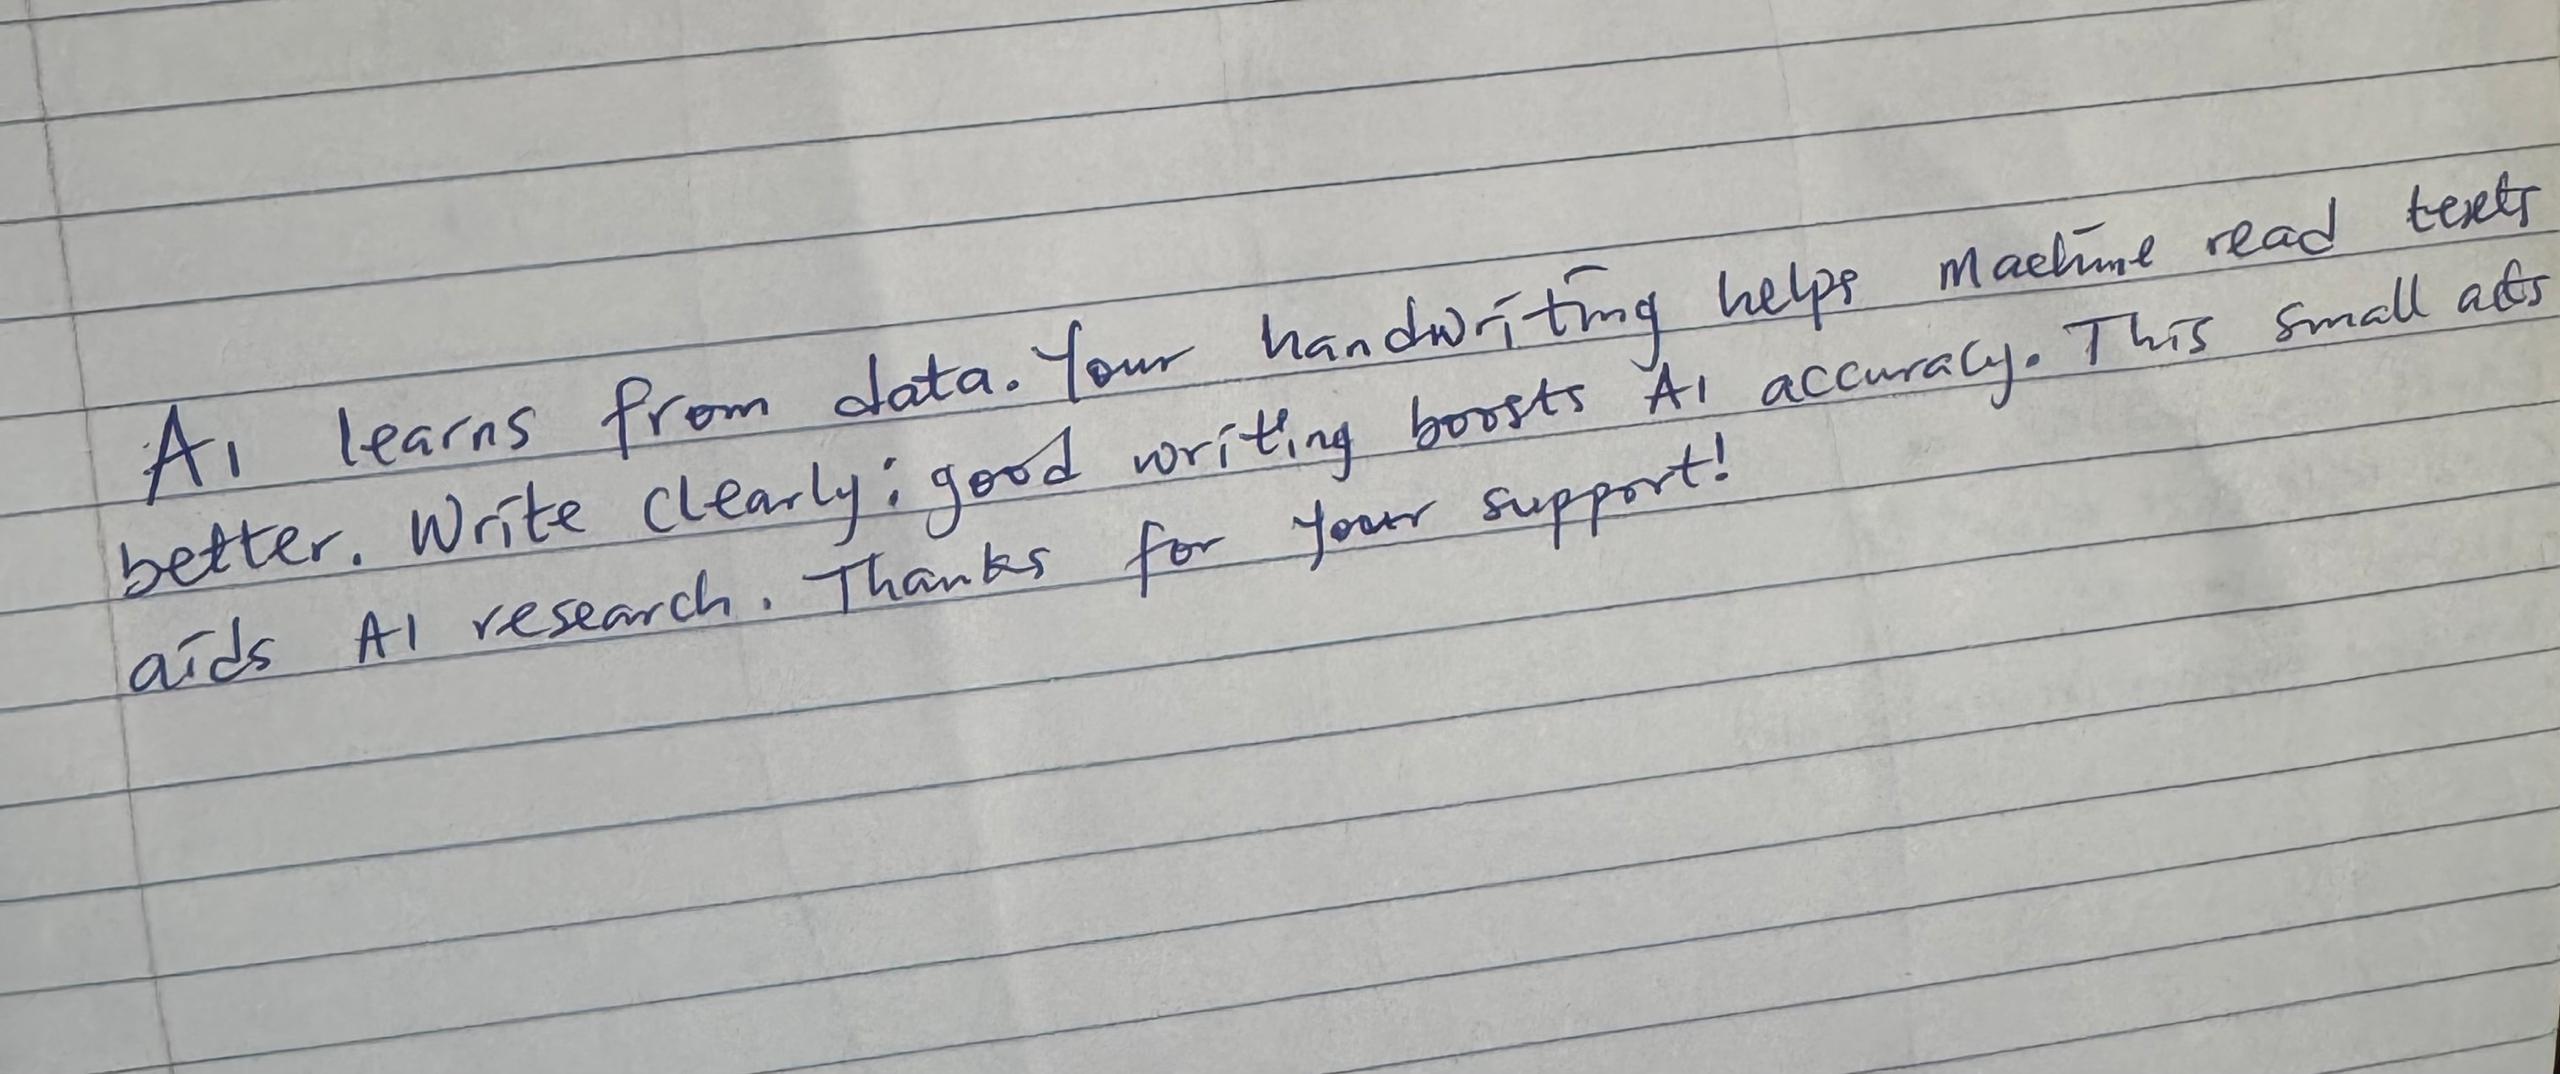 AI learns from data. Your handwriting helps Machine read texts
better. Write clearly; good writing boosts AI accuracy. This small acts
aids AI research. Thanks for your support!